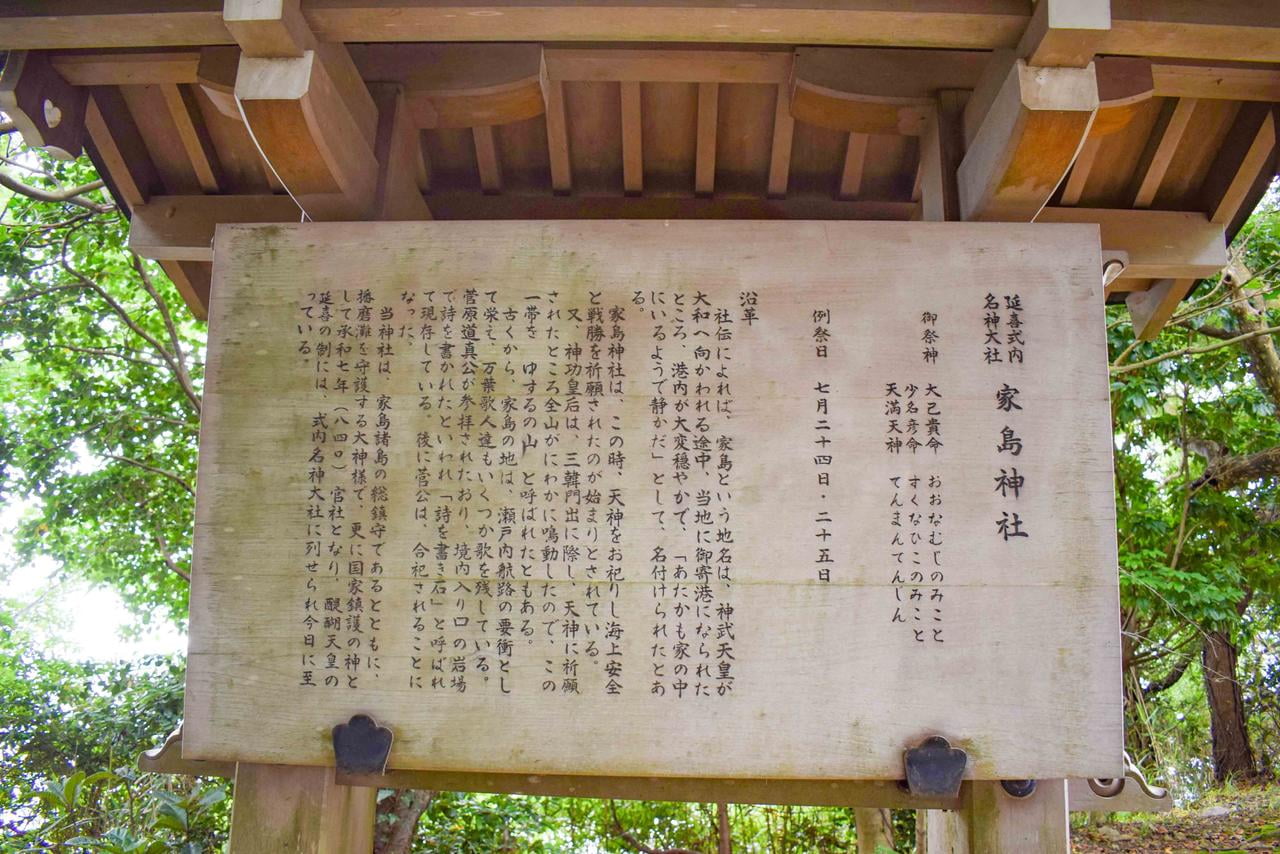 延喜式内
名神大社
家島神社
御祭神 大己貴命 おおなむじのみこと
少名彦命 すくなひこのみこと
天満天神 てんまんてんじん
例祭日 七月二十四日・二十五日
沿革
社伝によれば、家島という地名は、神武天皇が
大和へ向かわれる途中、当地に御寄港になられた
ところ、港内が大変穏やかで、「あたかも家の中
にいるようで静かだ」として、名付けられたとあ
る。
家島神社は、この時、天神をお祀りし海上安全
と戦勝を祈願されたのが始まりとされている。
又、神功皇后は、三韓門出に際し、天神に祈願
されたところ全山がにわかに鳴動したので、この
一帯を ゆするの山 と呼ばれたともある。
古くから、家島の地は、瀬戸内航路の要衝とし
て栄え、万葉歌人達もいくつか歌を残している。
菅原道真公が参拝されたおり、境内入り口の岩場
で詩を書かれたといわれ「詩を書き石」と呼ばれ
て現存している。後に菅公は、合祀されることに
なった。
当神社は、家島諸島の総鎮守であるとともに、
播磨灘を守護する大神様で、更に国家鎮護の神と
して承和七年(八四〇)官社となり、醍醐天皇の
延喜の制には、式内名神大社に列せられ今日に至
っている。